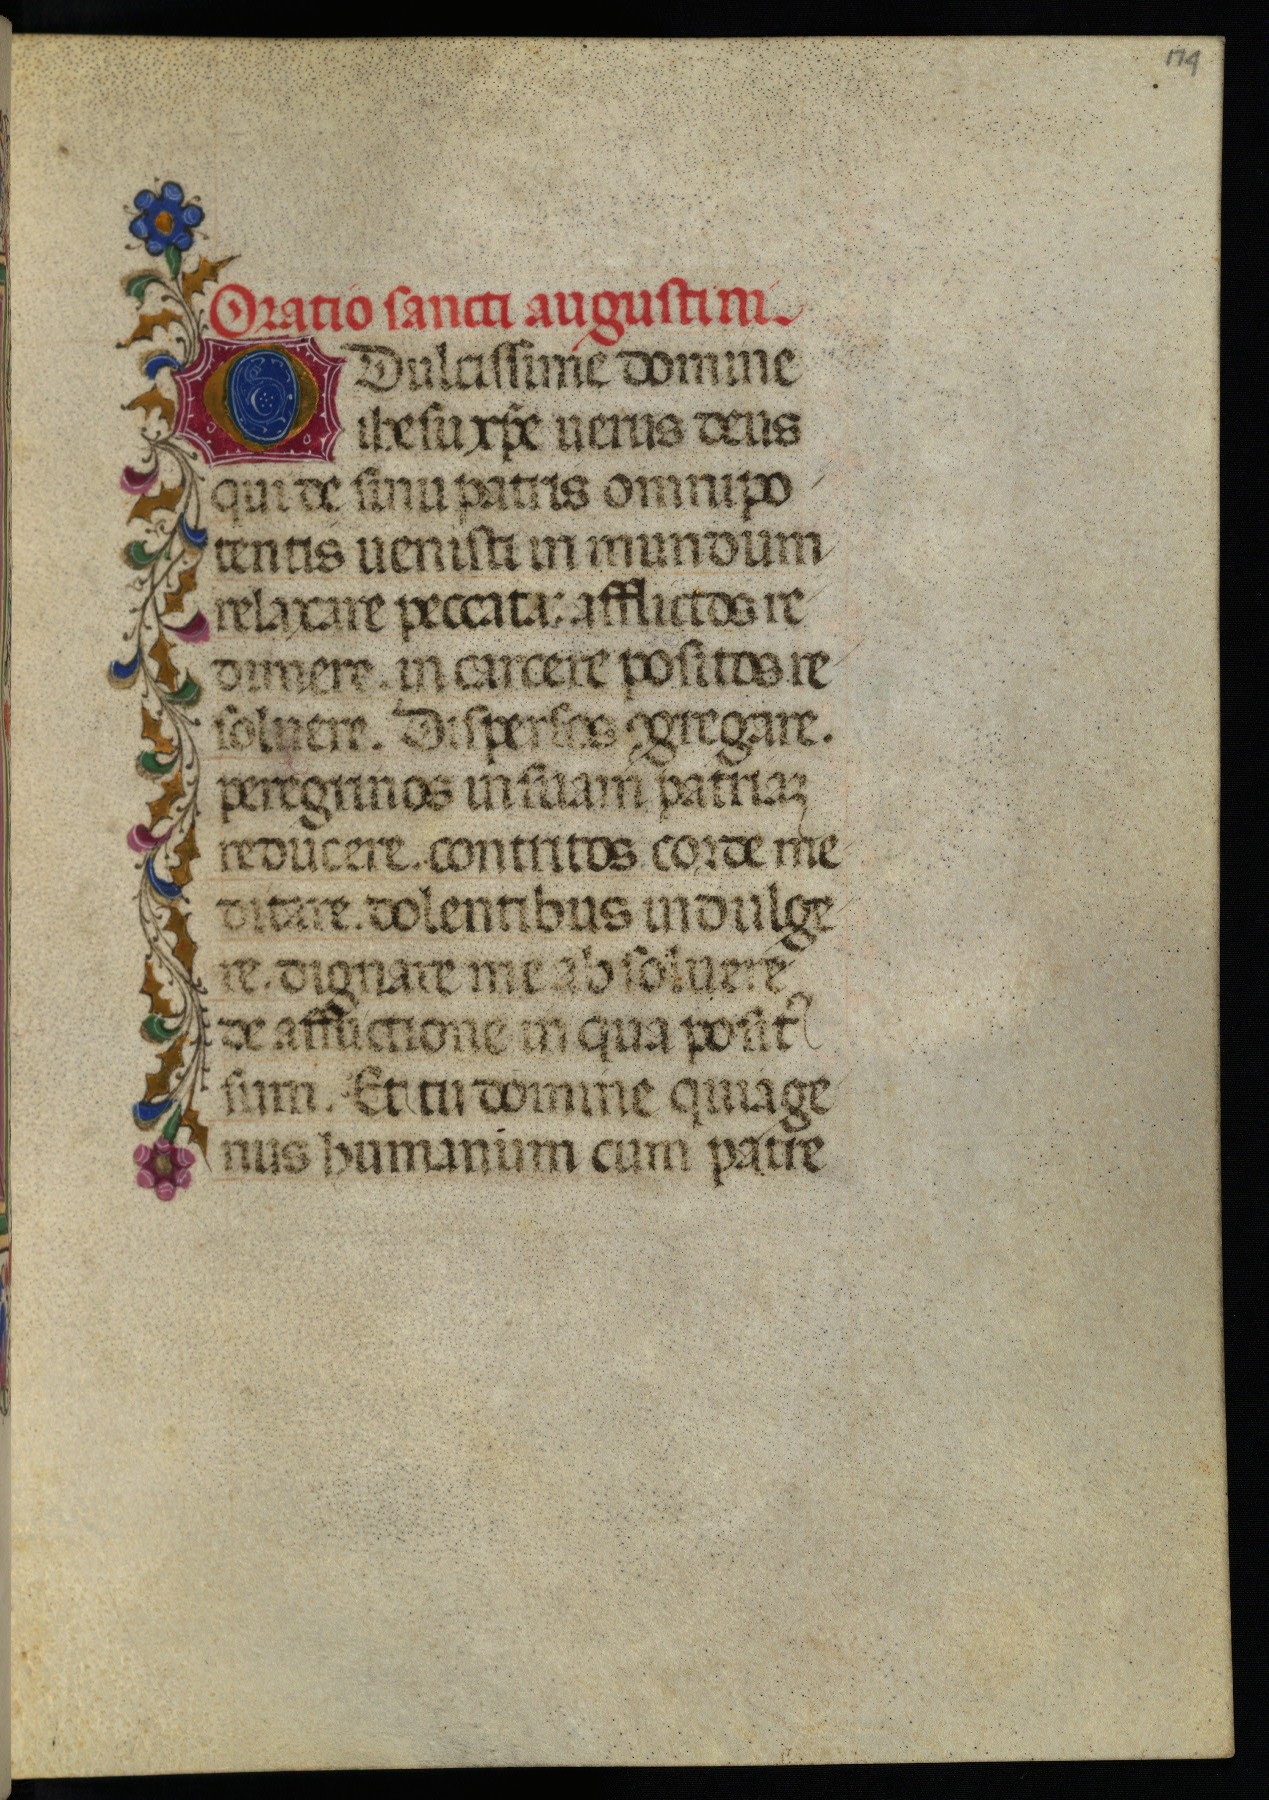 174
Oratio sancti augustini.
O Dulcissime domine
ihesu xp̃e uerus deus
qui de sinu patris omnipo
tentis uenisti in mundum
relaxare peccata: afflictos re
dimere. in carcere positos re
soluere. Dispersos ꝯgregare.
peregrinos in suam patriaꝫ
reducere. contritos corde me
ditare. dolentibus indulge
re. dignare me absoluere
de afflictione in qua positꝰ
sum. Et tu domine qui age
nus humanum cum patre